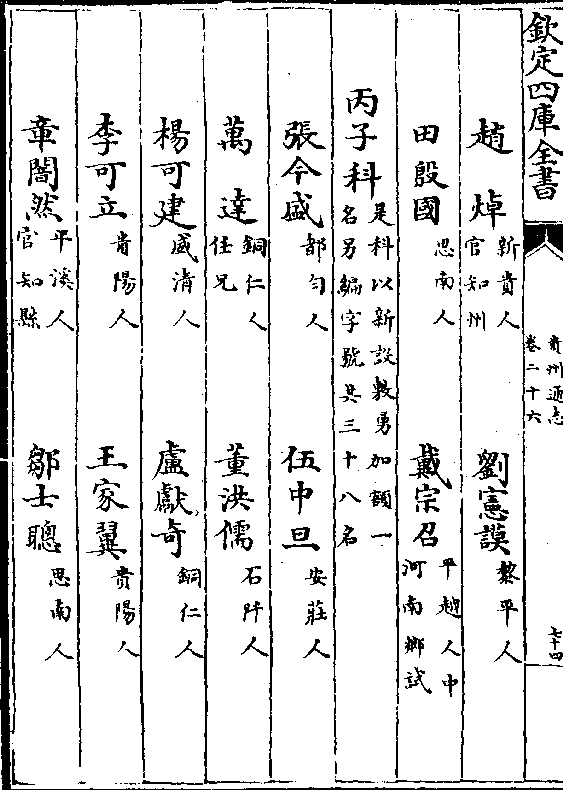 欽定四庫全書
貴州通志
卷二十六
七十四
趙焯 新貴人 官知州 劉憲謨 黎平人
田殷國 思南人 戴宗召 平越人中 河南鄉試
丙子科 是科以新設敷勇加額一 名另編字號共三十八名
張令盛 都勻人 伍中旦 安莊人
萬達 銅仁人 任兄 董洪儒 石阡人
楊可建 威清人 盧獻奇 銅仁人
李可立 貴陽人 王家翼 貴陽人
章闇然 平溪人 官知縣 鄒士聰 思南人